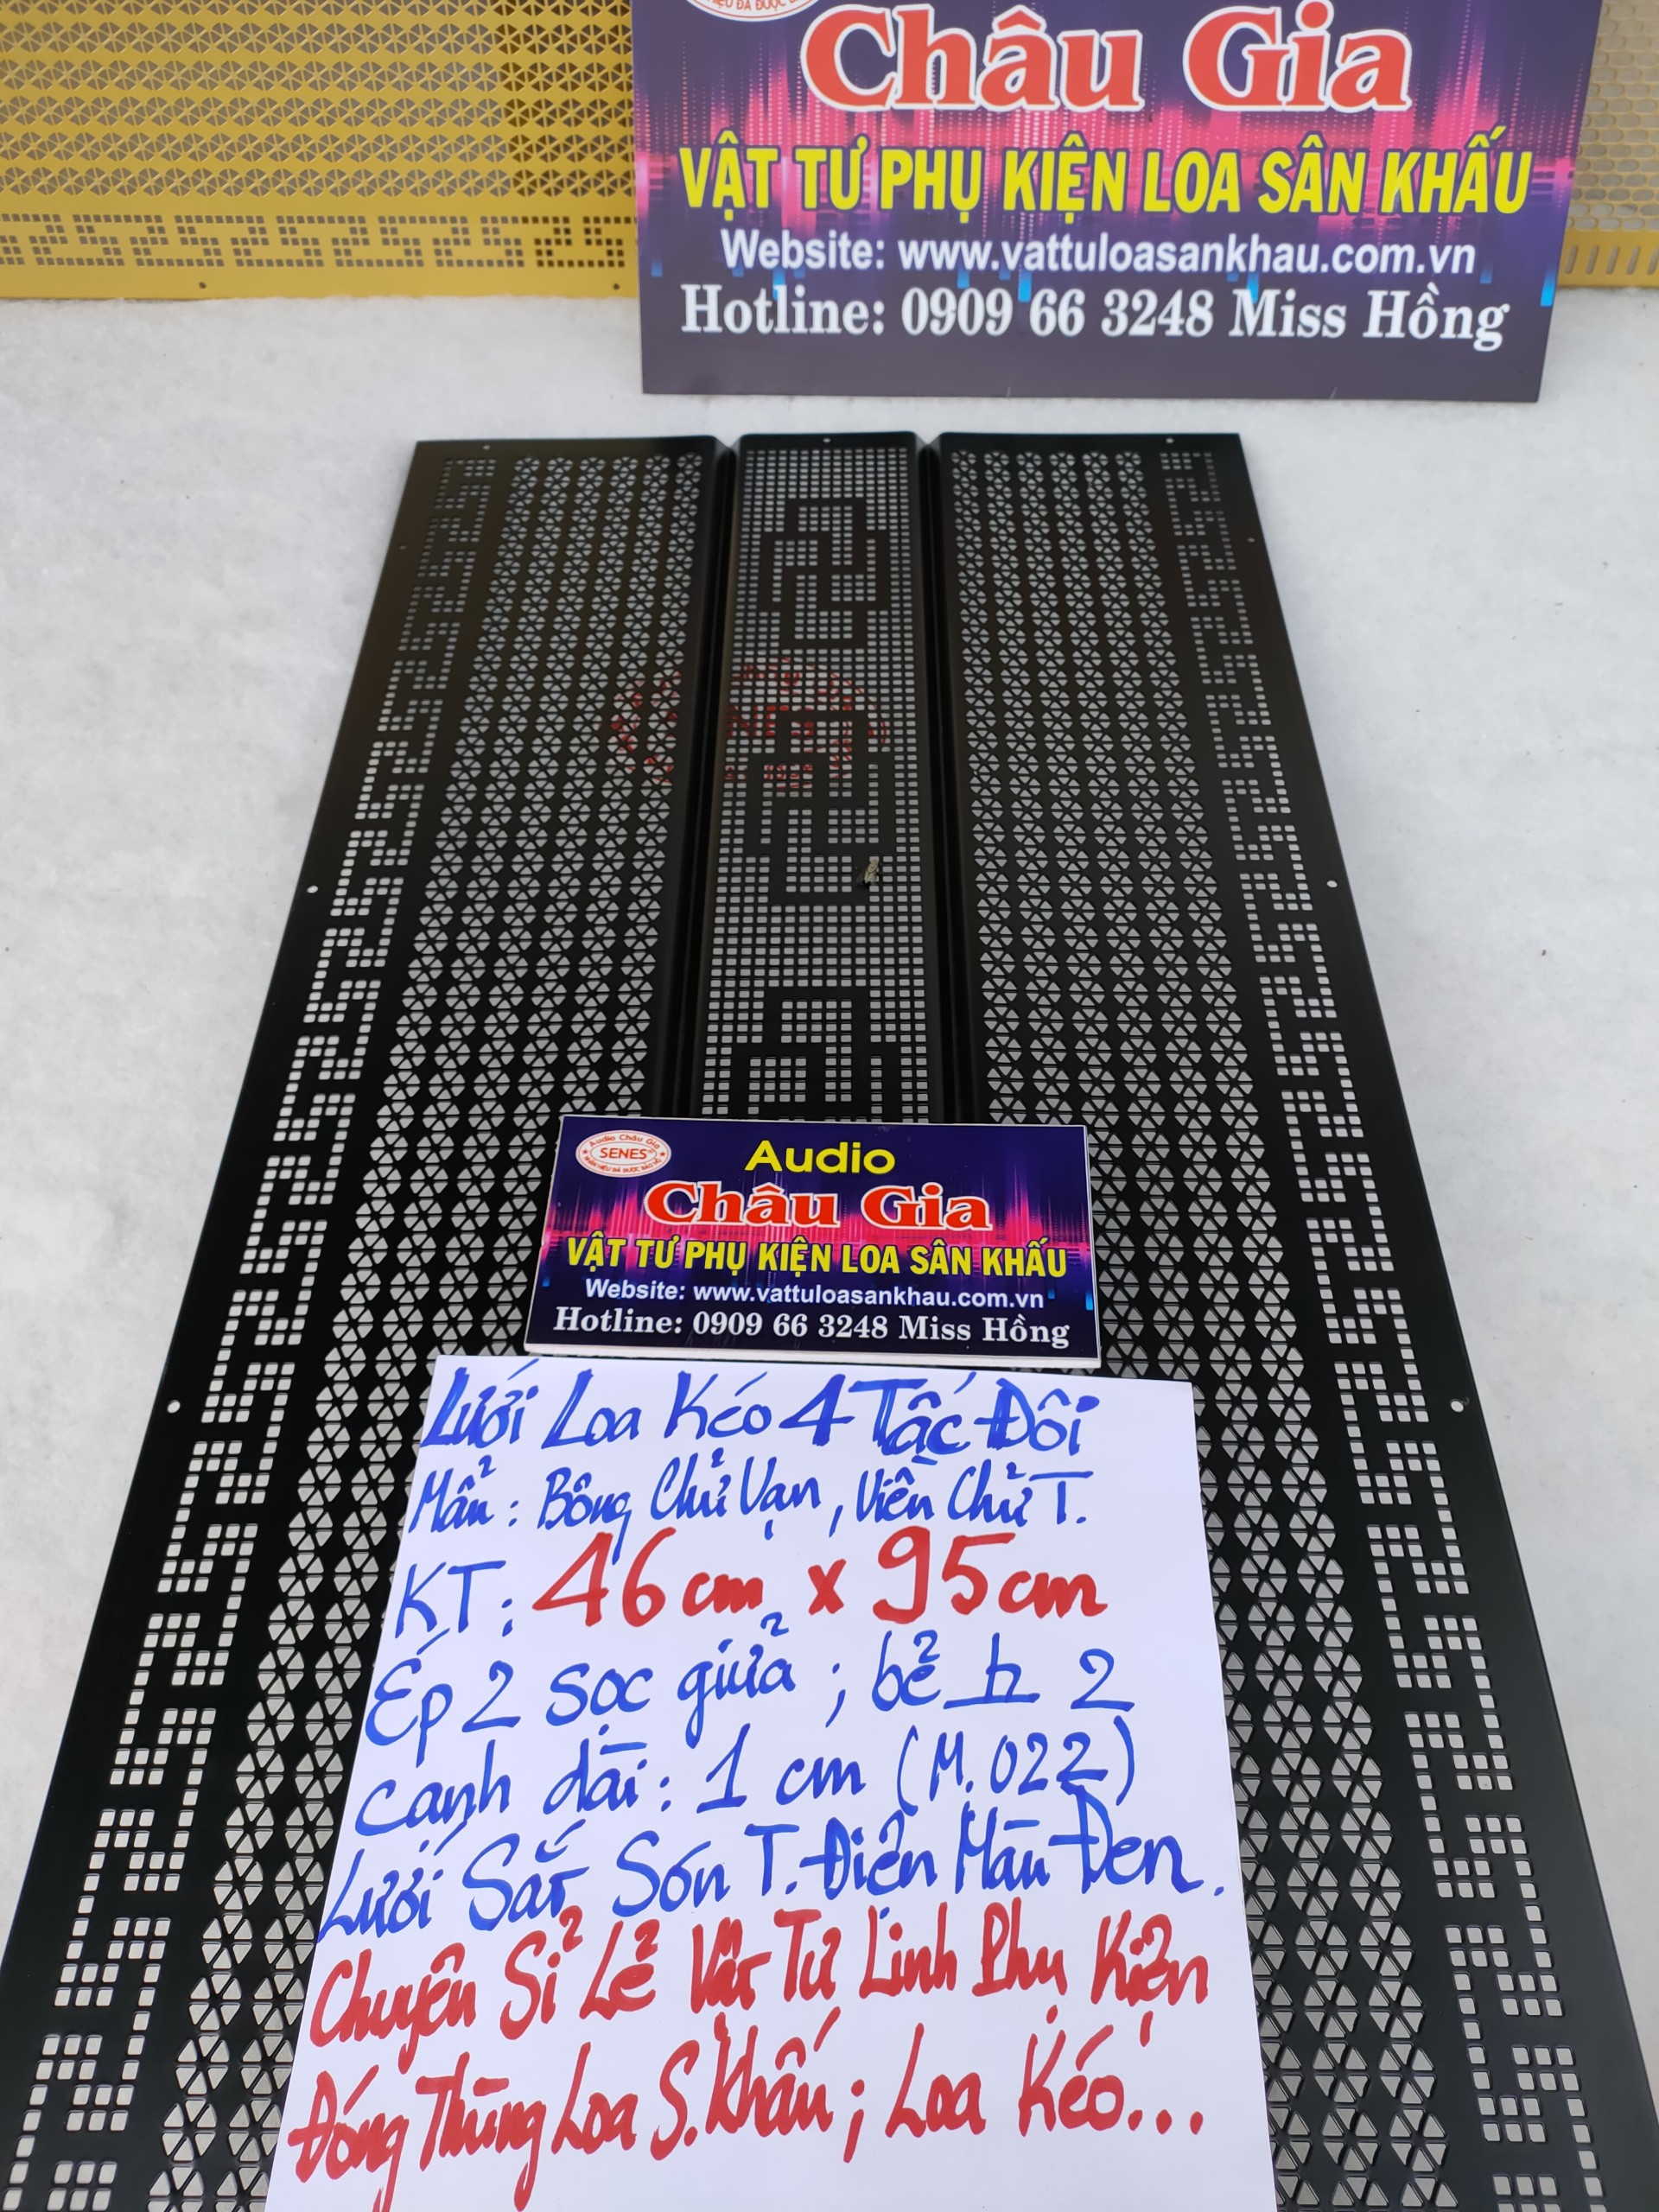 Châu Gia
VẬT TƯ PHỤ KIỆN LOA SÂN KHẤU
Website: www.vattuloasankhau.com.vn
Hotline: 0909 66 3248 Miss Hồng
Audio Châu Gia
SENES
NHÃN HIỆU ĐÃ ĐƯỢC BẢO HỘ
Audio
Châu Gia
VẬT TƯ PHỤ KIỆN LOA SÂN KHẤU
Website: www.vattuloasankhau.com.vn
Hotline: 0909 66 3248 Miss Hồng
Lưới Loa Kéo 4 Tấc Đôi
Mẩu: Bông Chử Vạn, Viền Chử T.
KT: 46cm x 95cm
Ép 2 sọc giửa; bẻ h 2
cạnh dài: 1 cm (M.022)
Lưới Sắt Sơn T.Điện Màu Đen.
Chuyên Sỉ Lẻ Vật Tư Linh Phụ Kiện
Đóng Thùng Loa S.Khấu; Loa Kéo...